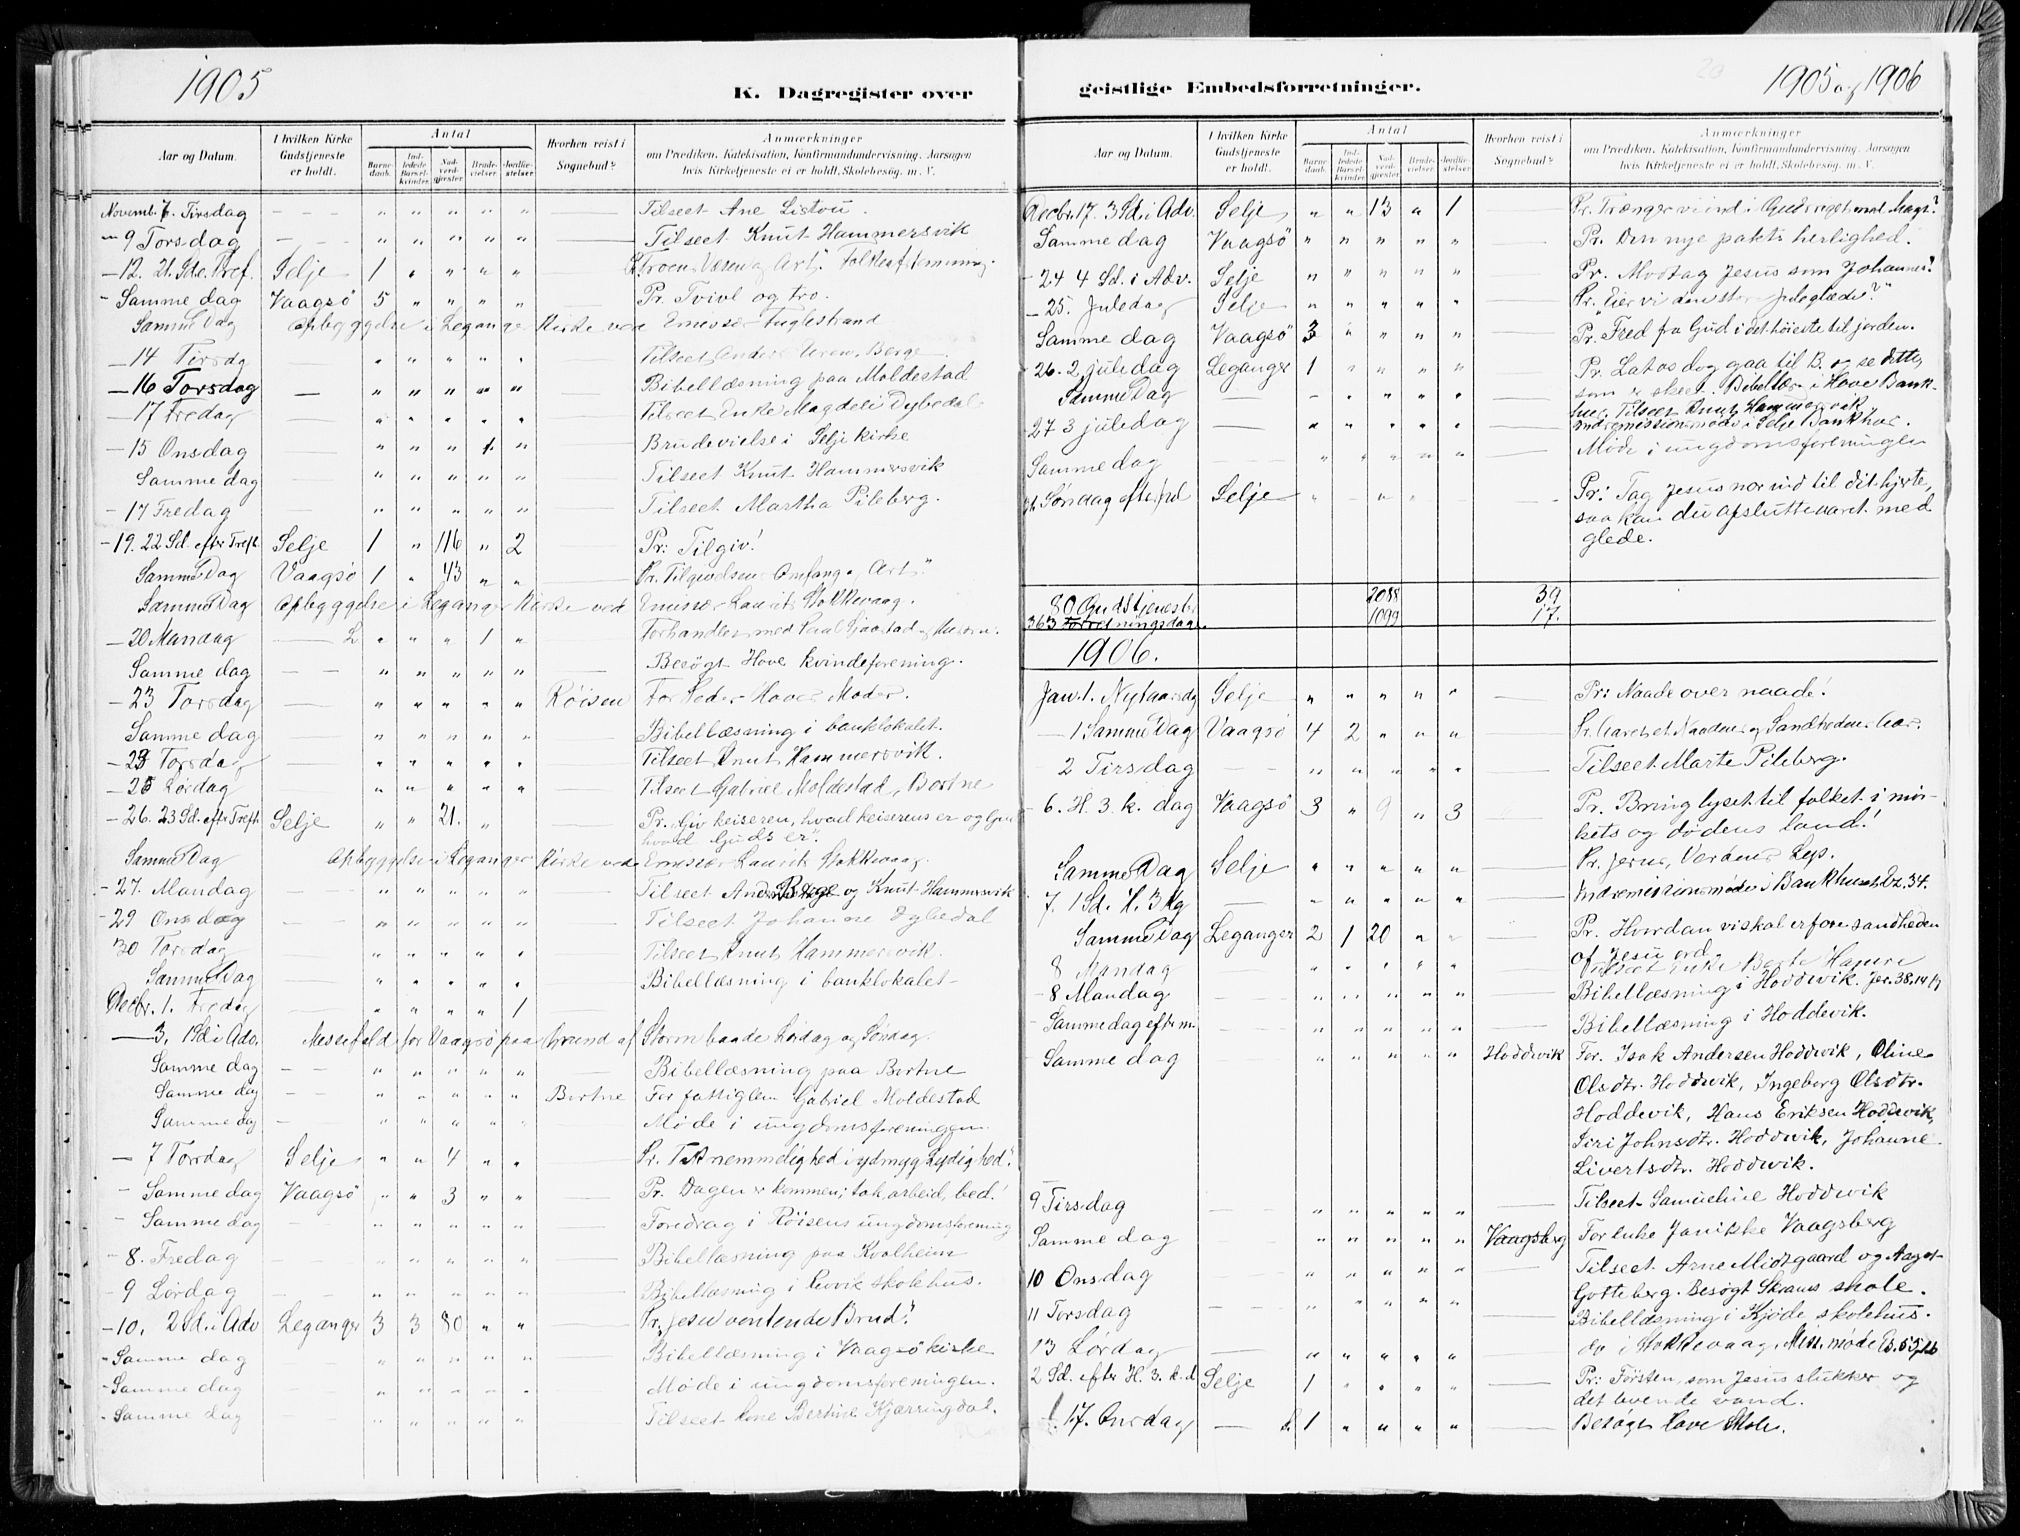 1905
K. Dagregister over
Aar og Datum. I hvilken Kirke Gudstjeneste er holdt. Antal Barnedaab. Indledede Barselkvinder. Nadverdgjæster. Brudevielser. Jordfæstelser. Hvorhen reist i Sognebud? Anmærkninger om Prædiken, Katekisation, Konfirmandundervisning. Aarsagen hvis Kirketjeneste ei er holdt. Skolebesøg. m. V.
Novemb. 7. Tirsdag - - - " " " " " — Tilseet Ane Listou.
" 9 Torsdag - - - " " " " " — Tilseet Knut Hammersvik
- 12. 21. Sde. Tref. Selje 1 " " " " Troens Væsen og Art
- Samme dag Vaagsø 5 " " " " — Pr. Tvivl og tro.
Samme Dag Opbyggelse i Leganger Kirke ved Emissær Fuglestrand
- 14 Tirsdg " " " " " — Tilseet Anders Berge
- 16 Torsdag — " " " " " — Bibellæsning paa Moldestad
- 17 Fredag — " " " " " — Tilseet Enke Magdeli Dybedal
- 15 Onsdag " " " 1 " — Brudevielse i Selje kirke
Samme dag " " " " " — Tilseet Knut Hammersvik
- 17 Fredag " " " " " — Tilseet Martha Pileberg.
- 19. 22 Sd. efter Tref. Selje 1 " 116 " 2 — Pr: Tilgiv!
Samme Dag Vaagsø 1 " 43 " " — Pr. Tilgivelsens Omfang og Art."
Samme Dag Opbyggelse i Leganger Kirke ved Emissær Laurits Stokkevaag.
- 20 Mandag — L " " " 1 " — Forhandler med
Samme dag - - " " " " " — Besøgt Hove kvindeforening.
- 23 Torsdag - - " " " " " Røisen For Peder Hoves Moder.
Samme dag " " " " " — Bibellæsning i banklokalet.
- 23 Torsdag " " " " " — Tilseet Knut Hammersvik.
- 25 Lørdag " " " " " — Tilseet Gabriel Moldestad, Bortne
- 26. 23 Sd. efter Tref. Selje " " 21. " — Pr. Giv keiseren, hvad keiserens er og Gud
hvad Guds er".
Samme Dag Opbyggelse i Leganger Kirke ved Emissær Laurits Stokkevaag.
- 27. Mandag — " " " " " — Tilseet Anders Berge og Knut Hammersvik
- 29 Onsdag - - " " " " " — Tilseet Johanne Dybedal
30 Torsdag " " " " " — Tilseet Knut Hammersvik.
Samme Dag " " " " " — Bibellæsning i banklokalet -
Decbr. 1. Fredag " " " " 1
- 3. 1 Sd i Adv. Messefald for Vaagsø paa Grund af Storm baade Lørdag og Søndag.
Samme dag - - " " " " " — Bibellæsning paa Bortne
Samme dag - - " " " " " Bortne For fattiglem Gabriel Moldestad
Samme dag " " " " " Møde i ungdomsforeningen.
- 7 Torsdag Selje " " 4 " " — Pr. Taknemmelighed i ydmyg Lydighed".
- Samme dag Vaagsø " " 3 " " — Pr. Dagen er kommen; tak, arbeid, bed!
- Samme dag — " " " " " — Foredrag i Røisens ungdomsforening
- 8. Fredag - - " " " " " — Bibellæsning paa Kvalheim
- 9 Lørdag - - " " " " " — Bibellæsning i skolehus.
- 10. 2 Sd. i Adv Leganger 3 3 80 " " — Pr. Jesu ventende Brud".
- Samme dag - - " " " " " — Bibellæsning i Vaagsø kirke
- Samme dag - - " " " " " — Møde i ungdomsforeningen.
- Samme dag - - " " " " " — Tilseet Ane Bertine Kjærringdal.
geistlige Embedsforretninger.
1905 og 1906
Aar og Datum. I hvilken Kirke Gudstjeneste er holdt. Antal Barnedaab. Indledede Barselkvinder. Nadverdgjæster. Brudevielser. Jordfæstelser. Hvorhen reist i Sognebud? Anmærkninger om Prædiken, Katekisation, Konfirmandundervisning. Aarsagen hvis Kirketjeneste ei er holdt. Skolebesøg. m. V.
Decbr. 17. 3 Sd. i Adv. Selje " " 13 " 1 — Pr. Trænger vi ind i Gudsriget med Magt?
Samme dag Vaagsø " " " " " — Pr. Den nye pakts herlighed.
- 24 4 Sd. i Adv. Selje " " " " " — Pr. Modtag Jesus som Johannes?
- 25. Juledag Selje " " " " " — Pr. "Eier vi den store juleglæde?"
Samme dag Vaagsø 3 " " " " — Pr. Fred fra Gud i det høieste til jorden.
- 26. 2. juledag Leganger 1 " " " " — Pr. Lat os dog gaa til B. og se dette,
Samme Dag — som er skeet. Bibellæsn. i Hove Bank-
hus. Tilseet Knut Hammersvik
27 3 juledag — Indremissionsmøde i Selje Bankhus.
Samme dag — Møde i ungdomsforeningen
Søndag efter jul Selje " - " " — Pr: Tag Jesus nær ind til dit hjerte,
saa kan du afslutte aaret med
glede.
80 Gudstjenester 2088 39
363 Forretningsdage. 1099 17.
1906.
Jan. 1. Nytaarsdg Selje " " " " " — Pr: Naade over naade!
- 1 Samme Dag Vaagsø 4 2 " " " — Pr. Aaret et Naadens og Sandhedens Aar.
2 Tirsdag - - " " " " " — Tilseet Marte Pileberg.
- 6. H. 3 k. dag Vaagsø 3 " 9 " 3 Pr. Bring lyset til folket i mør-
kets og dødens land!
Samme Dag Selje " " " " " — Pr. Jesus, Verdens Lys.
7. 1 Sd. H. 3 Kg — " " " " " — Indremissionsmøde i Bankhuset Ez. 34.
Samme Dag Leganger 2 1 20 " " — Pr. Hvordan vi skal erfare sandheden
af Jesu ord
8 Mandag " " " " " — Tilseet Enke Berte
- 8 Mandag - - " " " " " — Bibellæsning i Hoddevik. Jer. 38. 14 ff
- Samme dag efterm. - - " " " " " — Bibellæsning i Hoddevik.
- Samme dag - - " " " " " Hoddevik For. Isak Andersen Hoddevik, Oline
Olsdtr. Hoddevik, Ingeborg Olsdtr.
Hoddevik, Hans Eriksen Hoddevik,
Siri Johnsdtr. Hoddevik, Johanne
Livertsdtr. Hoddevik.
9 Tirsdag " " " " " — Tilseet Samueline Hoddevik
Samme dag " " " " " Vaagsberg For enke Janikke Vaagsberg
10 Onsdag " " " " " — Tilseet Arne Midtgaard og Aagot
Gotteberg. Besøgt Skraus skole.
11 Torsdag - - " " " " " — Bibellæsning i Kjøde skolehus.
13 Lørdag " " " " " — do i Stokkevaag. Miss. møde
2 Sd. efter H. 3. k. d. Selje 1 " " " " — Pr: Tørsten, som Jesus slukker og
det levende vand.
17. Onsdag — 1 " " " " — Besøgt Hove Skole.